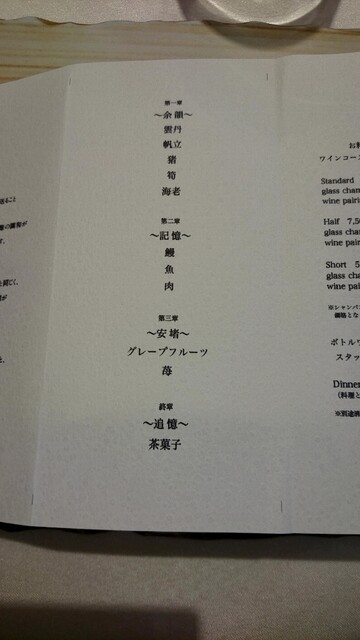 第一章
〜余韻〜
雲丹
帆立
猪
筍
海老
第二章
〜記憶〜
鰻
魚
肉
第三章
〜安堵〜
グレープフルーツ
苺
終章
〜追憶〜
茶菓子
ワインコー
Standard
glass cha
wine pairi
Half 7,5
glass cha
wine pair
Short 5
glass cha
wine pai
※シャンパ
価格とな
ボトルワ
スタッ
Dinner
(料理と
※別途